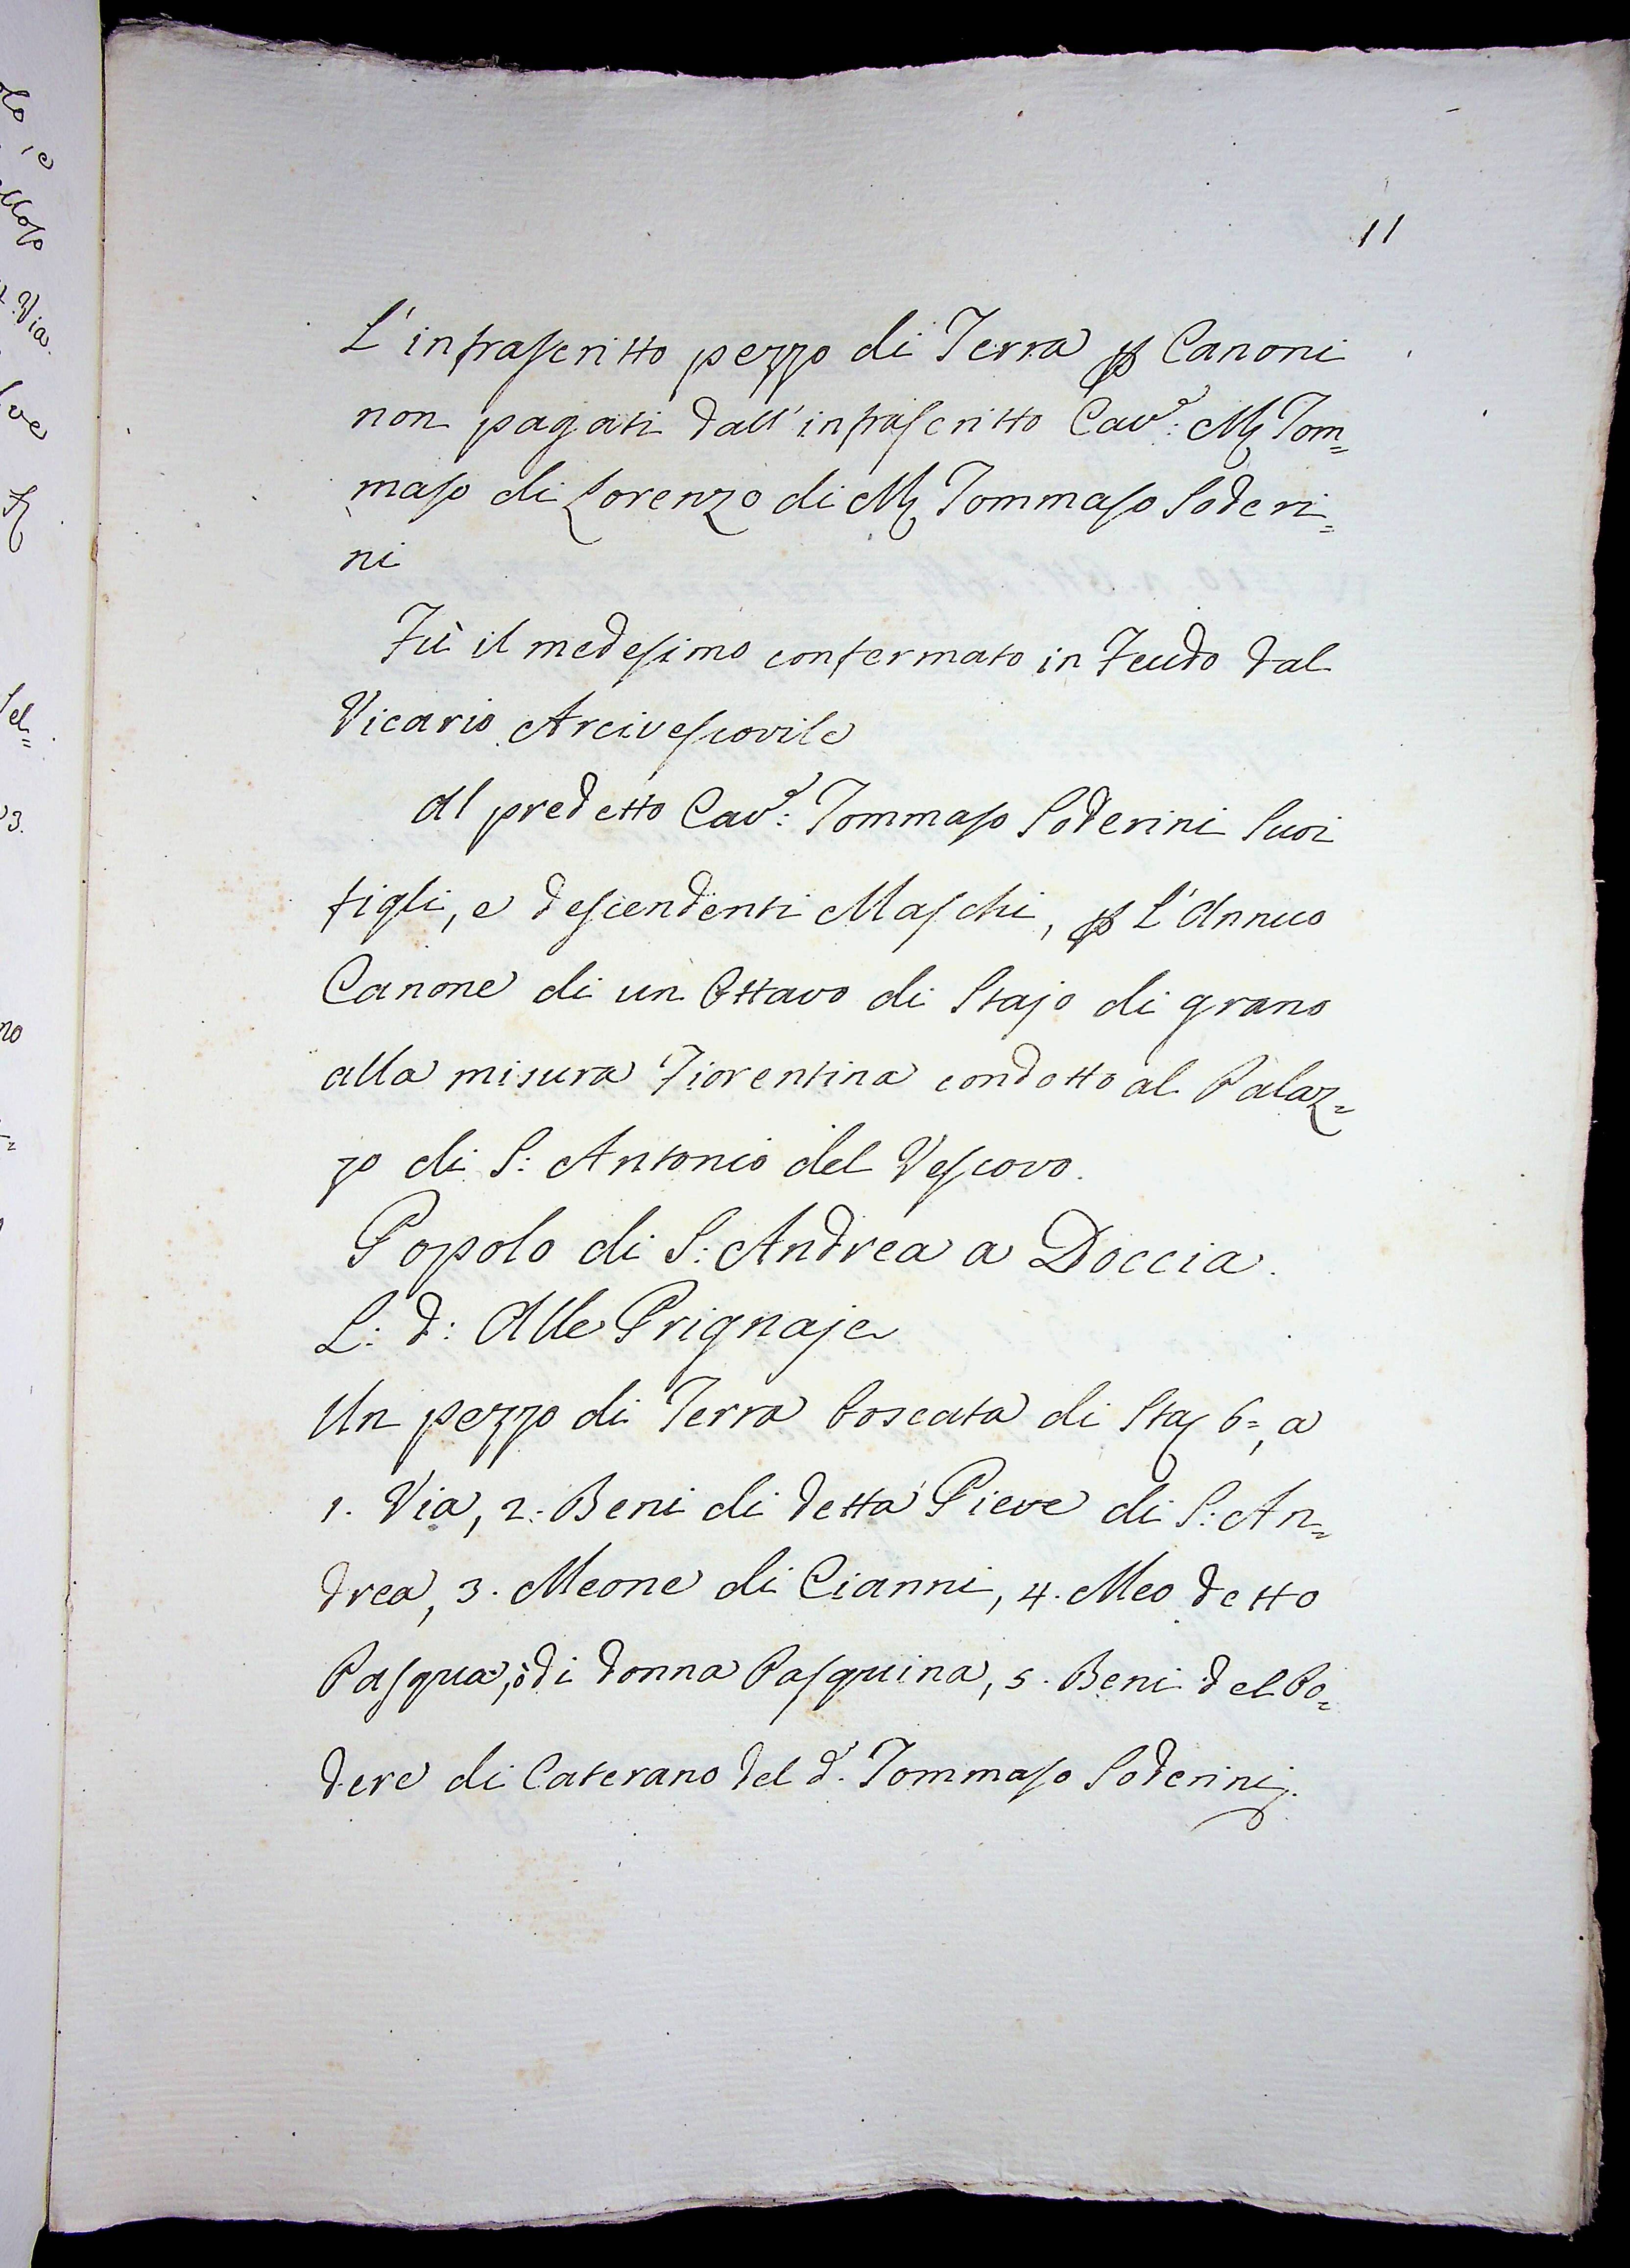 11
L'infrascritto pezzo di Terra p Canoni
non pagati dall'infrascritto Cav.e: M. Tom=
maso di Lorenzo di M. Tommaso Soderi=
ni
Fù il medesimo confermato in Feudo dal
Vicario Arcivescovile
Al predetto Cav.e: Tommaso Soderini Suoi
figli, e descendenti Maschi, p L'Annuo
Canone di un Ottavo di Stajo di grano
alla misura Fiorentina condotto al Palaz=
zo di S: Antonio del Vescovo.
Popolo di S: Andrea a Doccia.
L: d: Alle Prignaje
Un pezzo di Terra boscata di Staj 6=, a
1. Via, 2: Beni di detta Pieve di S: An=
drea, 3. Meone di Cianni, 4. Meo detto
Pasqua, ò di donna Pasquina, 5. Beni del Po=
dere di Caterano del d.o Tommaso Soderinj.